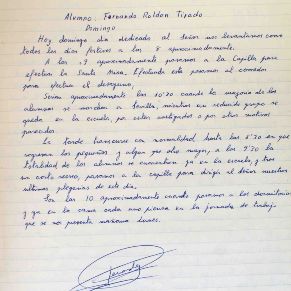 Alumno: Fernando Roldan Tirado
Domingo
Hoy domingo dia dedicado al Señor nos levantamos como
todos los dias festivos a las 8 aproximadamente.
A las 9 aproximadamente pasamos a la Capilla para
efectuar la Santa Misa. Efectuada esta pasamos al comedor
para efectuar el desayuno,
Serian aproximadamente las 10'30 cuando la mayoria de los
alumnos se marchan a Sevilla, mientras un reducido grupo se
queda en la escuela, por estar castigados o por otros motivos
parecidos.
La tarde transcurre con normalidad hasta las 8'30 en que
regresan los pequeños y algun que otro mayor, a las 9'30 la
totalidad de los alumnos se encuentran ya en la escuela, y tras
un corto recreo, pasamos a la capilla para dirigir al Señor nuestras
ultimas plegarias de este dia.
Son las 10 aproximadamente cuando pasamos a los dormitorios
y ya en la cama cada uno piensa en la jornada de trabajo
que se nos presenta mañana lunes.